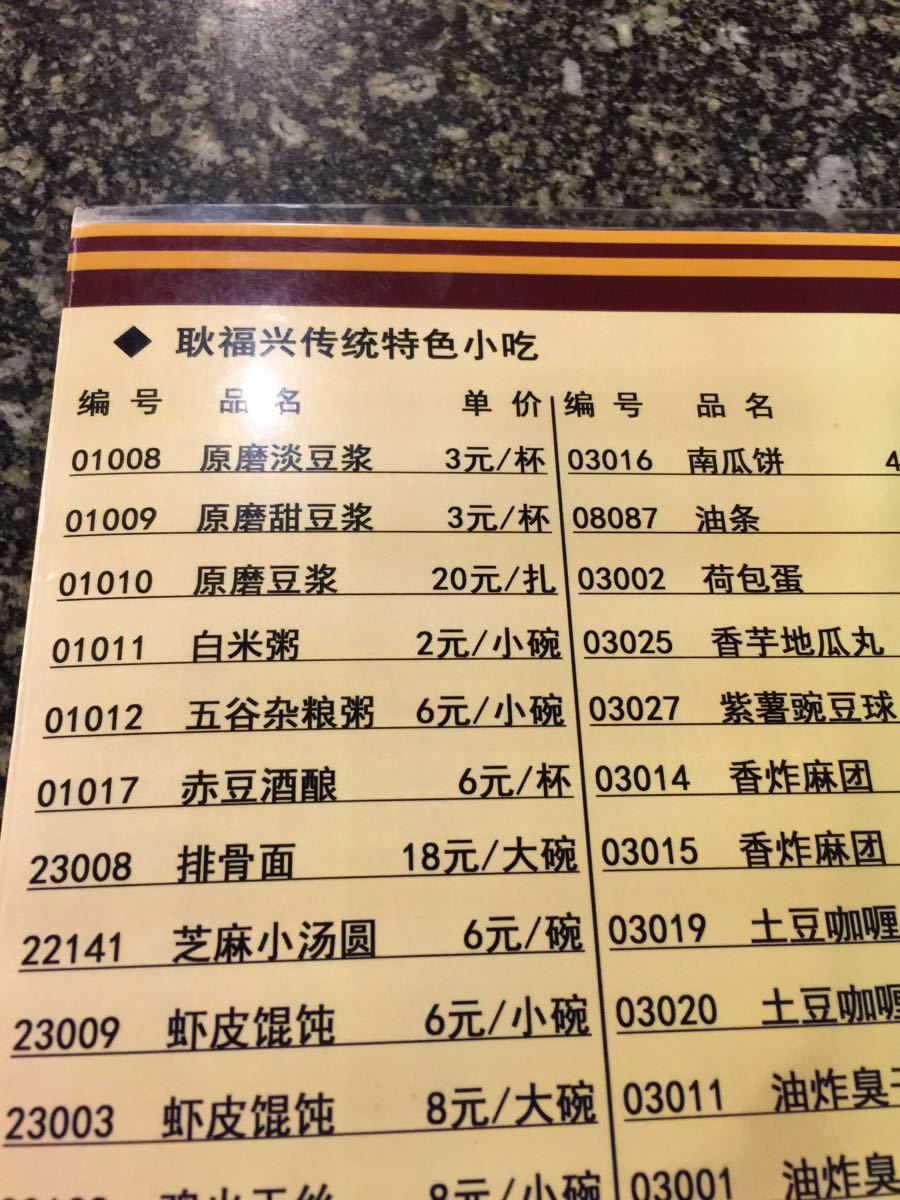 ◆ 耿福兴传统特色小吃
编号 品名 单价 编号 品名
01008 原磨淡豆浆 3元/杯 03016 南瓜饼 4
01009 原磨甜豆浆 3元/杯 08087 油条
01010 原磨豆浆 20元/扎 03002 荷包蛋
01011 白米粥 2元/小碗 03025 香芋地瓜丸
01012 五谷杂粮粥 6元/小碗 03027 紫薯豌豆球
01017 赤豆酒酿 6元/杯 03014 香炸麻团
23008 排骨面 18元/大碗 03015 香炸麻团
22141 芝麻小汤圆 6元/碗 03019 土豆咖喱
23009 虾皮馄饨 6元/小碗 03020 土豆咖喱
23003 虾皮馄饨 8元/大碗 03011 油炸臭干
8元/小碗 03001 油炸臭